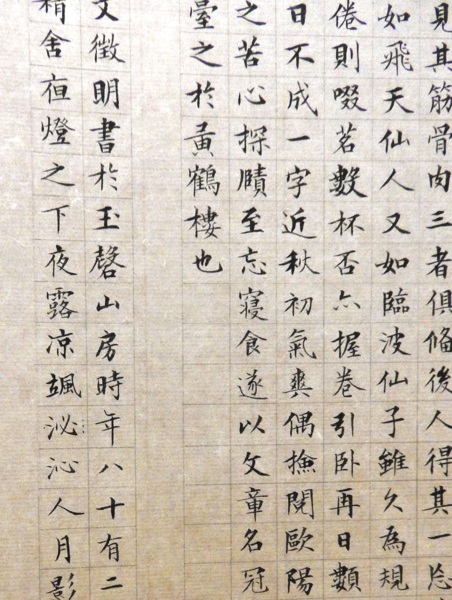 見其筋骨肉三者俱俻後人得其一
如飛天仙人又如臨波仙子雖久為規
倦則啜茗數杯否亦握卷引卧再日
日不成一字近秋初氣爽偶撿閱歐陽
之苦心探賾至忘寢食遂以文章名冠
臺之於黃鶴樓也
文徵明書於玉磬山房時年八十有二
精舍亱燈之下夜露凉颯泌沁人月影